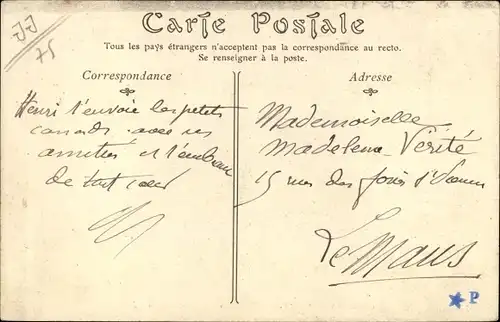 JJ
75
Carte Postale
Tous les pays étrangers n'acceptent pas la correspondance au recto.
Se renseigner à la poste.
Correspondance
Henri t'envoie les petits
canards avec ses
amitiés et t'embrasse
de tout cœur
Adresse
Mademoiselle
Madeleine Vérité
15 rue des
Le Mans
P